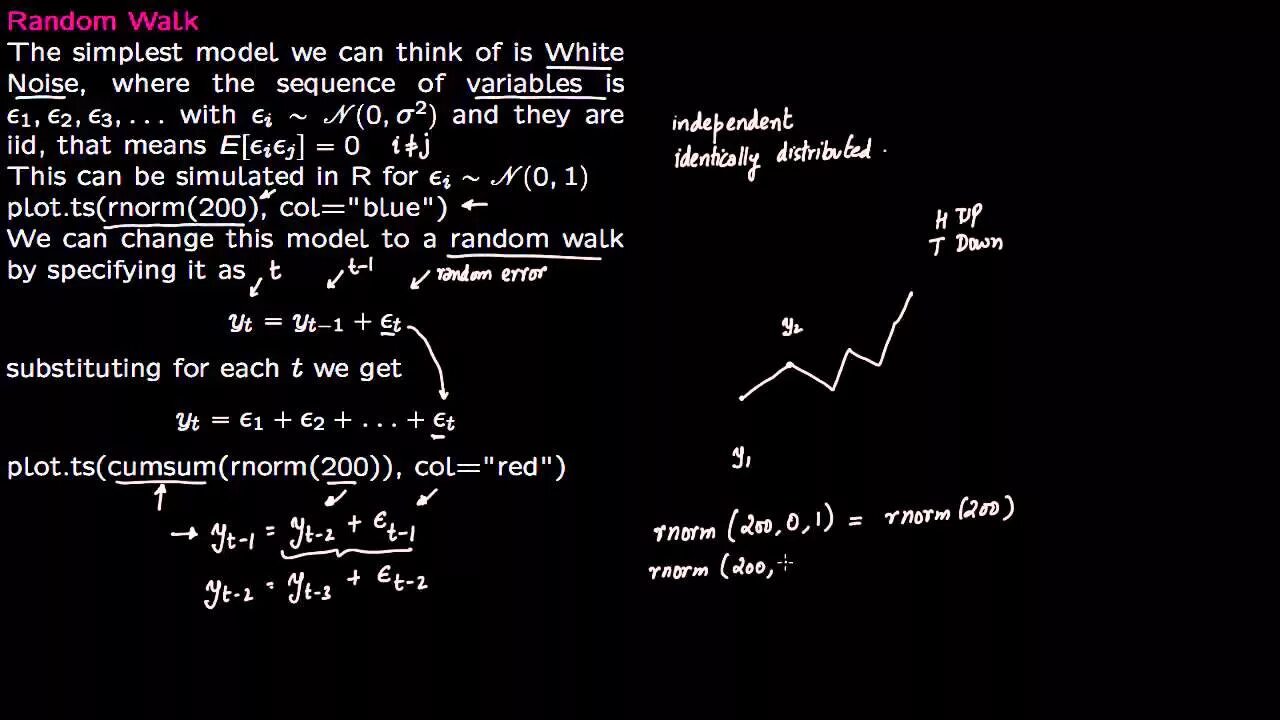 Random Walk
The simplest model we can think of is White
Noise, where the sequence of variables is
ϵ₁, ϵ₂, ϵ₃, ... with ϵᵢ ∼ 𝒩(0, σ²) and they are
iid, that means E[ϵᵢϵⱼ] = 0 i≠j
This can be simulated in R for ϵᵢ ∼ 𝒩(0, 1)
plot.ts(rnorm(200), col="blue") ←
We can change this model to a random walk
by specifying it as
t t-1 random error
yₜ = yₜ₋₁ + ϵₜ
substituting for each t we get
yₜ = ϵ₁ + ϵ₂ + ... + ϵₜ
plot.ts(cumsum(rnorm(200)), col="red")
→ yₜ₋₁ = yₜ₋₂ + ϵₜ₋₁
yₜ₋₂ = yₜ₋₃ + ϵₜ₋₂
independent
identically distributed.
H UP
T Down
y₂
y₁
rnorm (200, 0, 1) = rnorm (200)
rnorm (200,